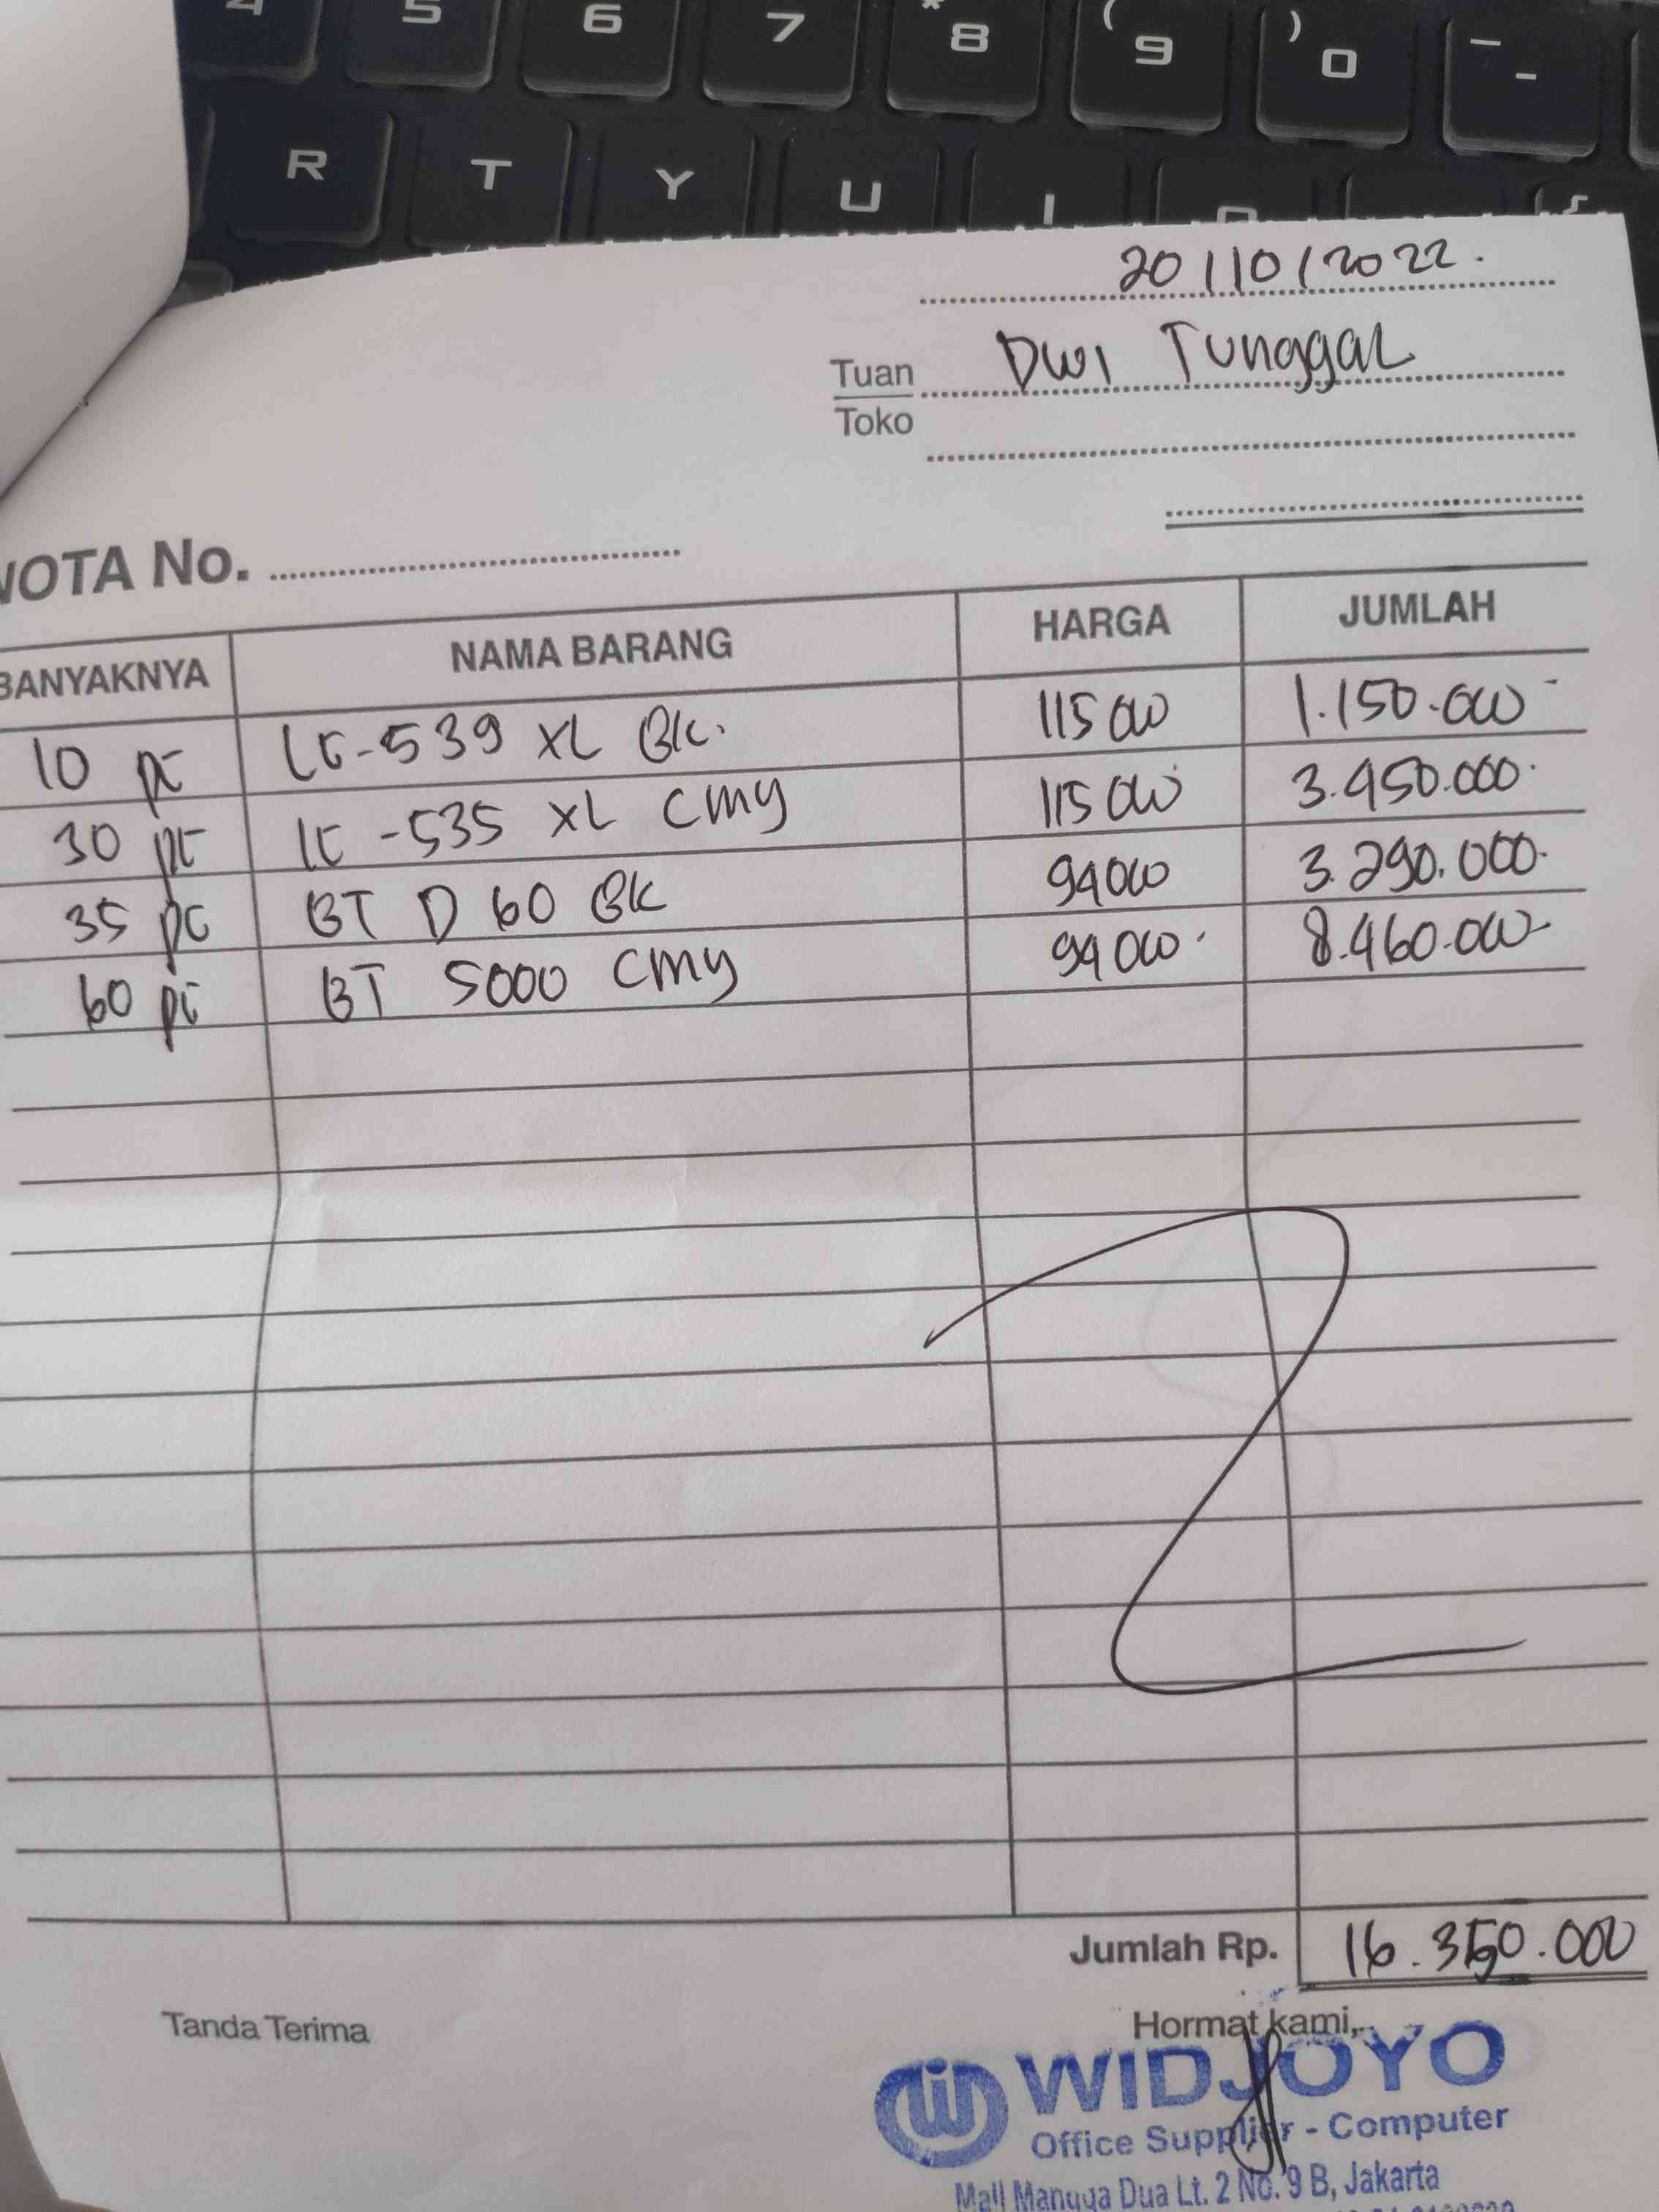 4 5 6 7 * 8 ( 9 ) 0 _ -
R T Y U I
20/10/2022.
Tuan Dwi Tunggal
Toko
NOTA No.
BANYAKNYA NAMA BARANG HARGA JUMLAH
10 pc LC-539 XL BK. 115000 1.150.000
30 pc LC-535 XL CMY 115000 3.450.000
35 pc BT D 60 BK 94000 3.290.000
60 pc BT 5000 CMY 94000 8.460.000
Jumlah Rp. 16.350.000
Tanda Terima Hormat kami,
WIDJOYO
Office Supplier - Computer
Mall Mangga Dua Lt. 2 No. 9 B, Jakarta